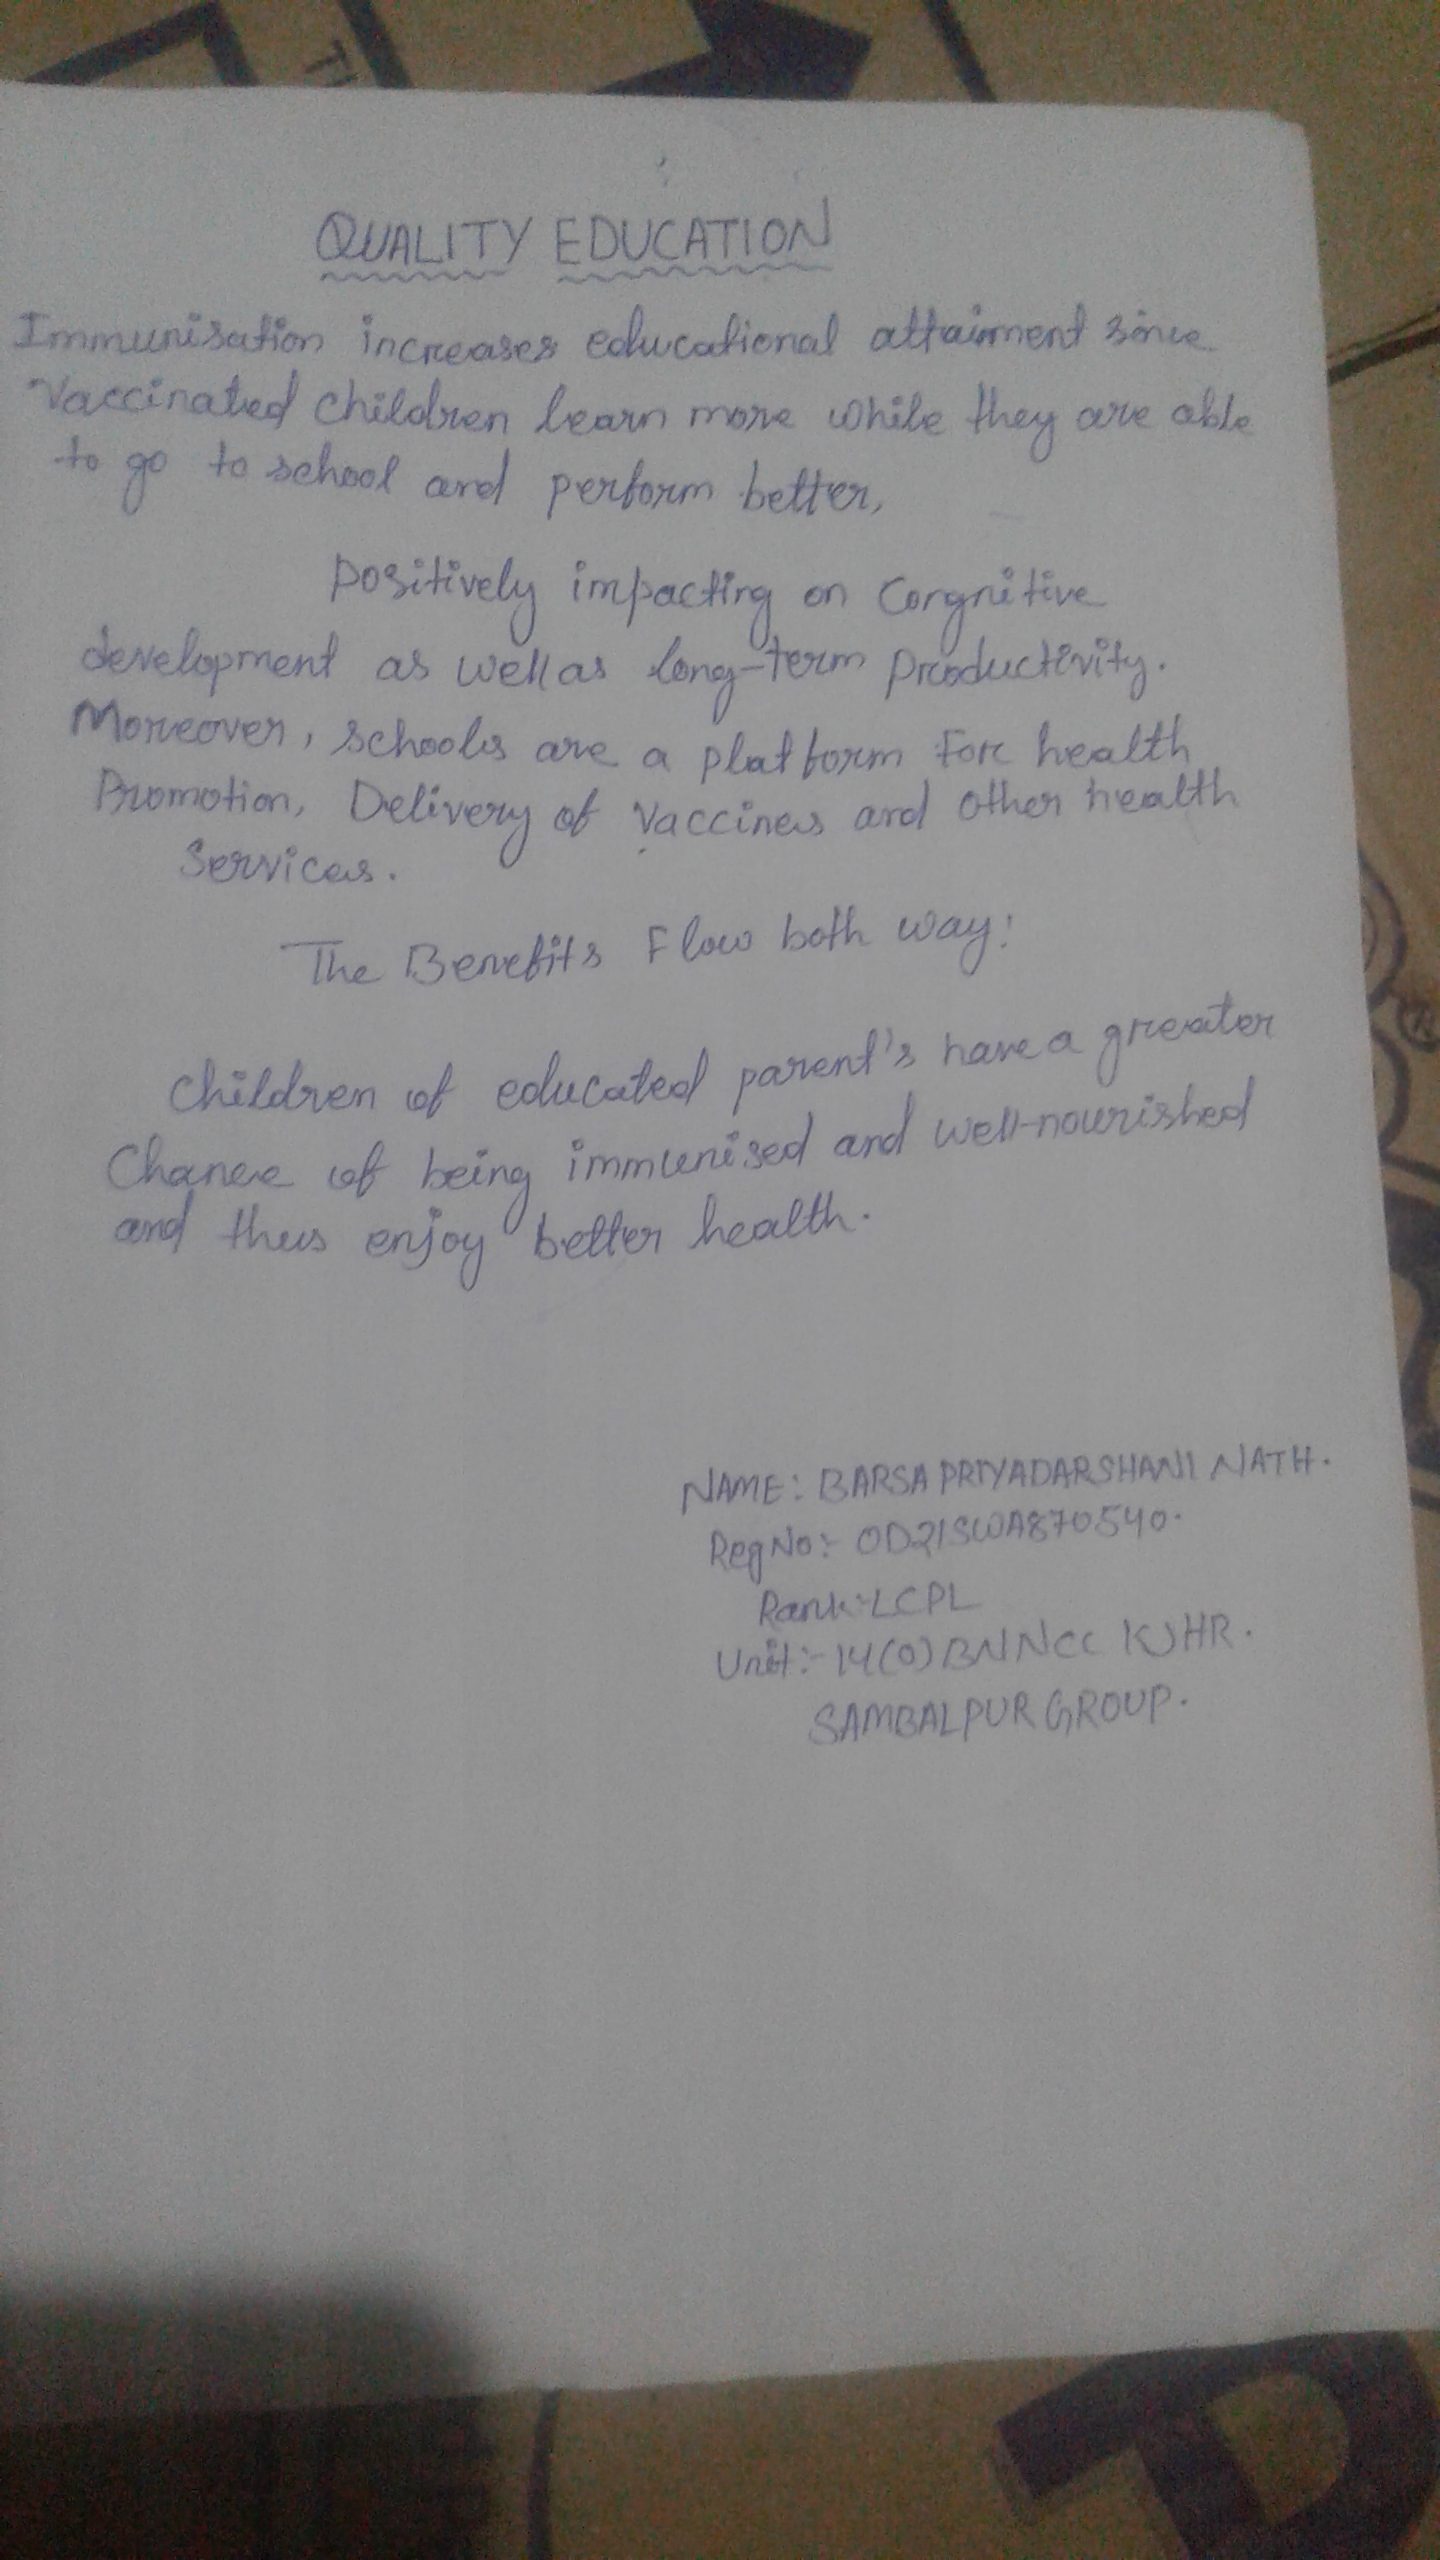 QUALITY EDUCATION
Immunisation increases educational attainment since
Vaccinated children learn more while they are able
to go to school and perform better,
positively impacting on Corgnitive
development as well as long-term productivity.
Moreover, schools are a platform For health
Promotion, Delivery of Vaccines and other health
Services.
The Benefits Flow both way!
Children of educated parent's have a greater
Chance of being immunised and well-nourished
and thus enjoy better health.
NAME: BARSA PRIYADARSHANI NATH.
Reg No:- OD21SWA870540.
Rank:- LCPL
Unit:- 14(O) BN NCC KJHR.
SAMBALPUR GROUP.